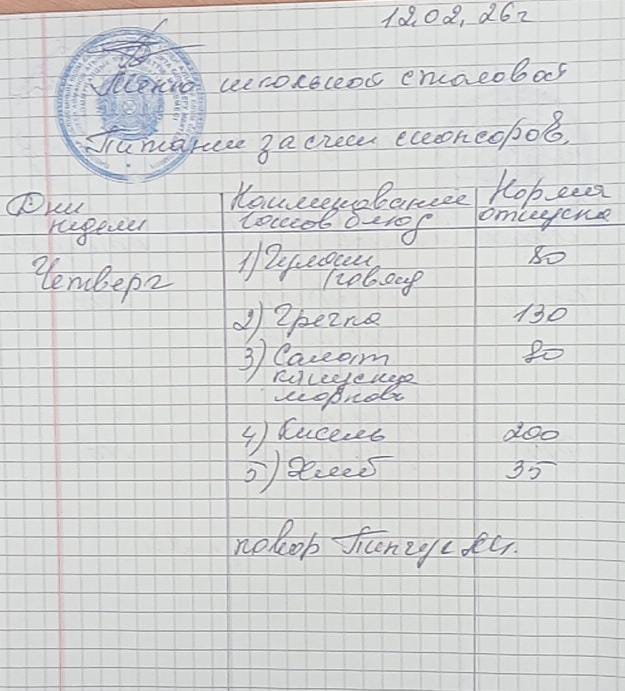 12.02.26г
Меню школьной столовой
Питание за счет спонсоров.
Дни недели
Наименование готов блюд
Норма отпуска
Четверг
1) Гуляш 80
(говяд
2) Гречка 130
3) Салат 80
капуста
морковь
4) Кисель 200
5) Хлеб 35
повар